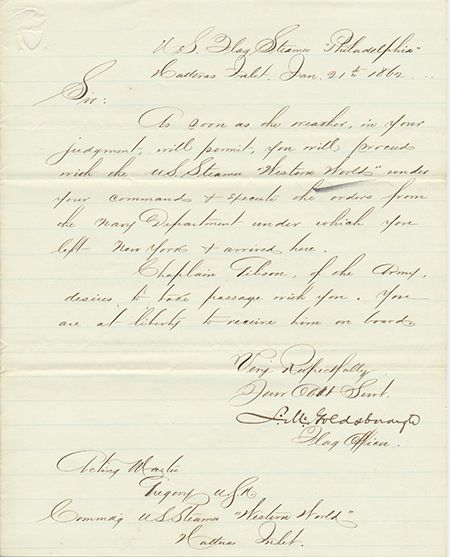 U.S. Flag Steamer "Philadelphia"
Hatteras Inlet, Jan. 21st 1862...
Sir:
As soon as the weather, in your
judgment, will permit, you will proceed
with the U.S. Steamer "Western World" under
your command & execute the orders from
the Navy Department under which you
left New York & arrived here.
Chaplain, of the Army,
desires to take passage with you. You
are at liberty to receive him on board.
Very Respectfully
Your Obt Servt.
L. M. Goldsborough
Flag Officer.
Acting Master
Gregory USN
Commdg U.S. Steamer "Western World"
Hatteras Inlet.